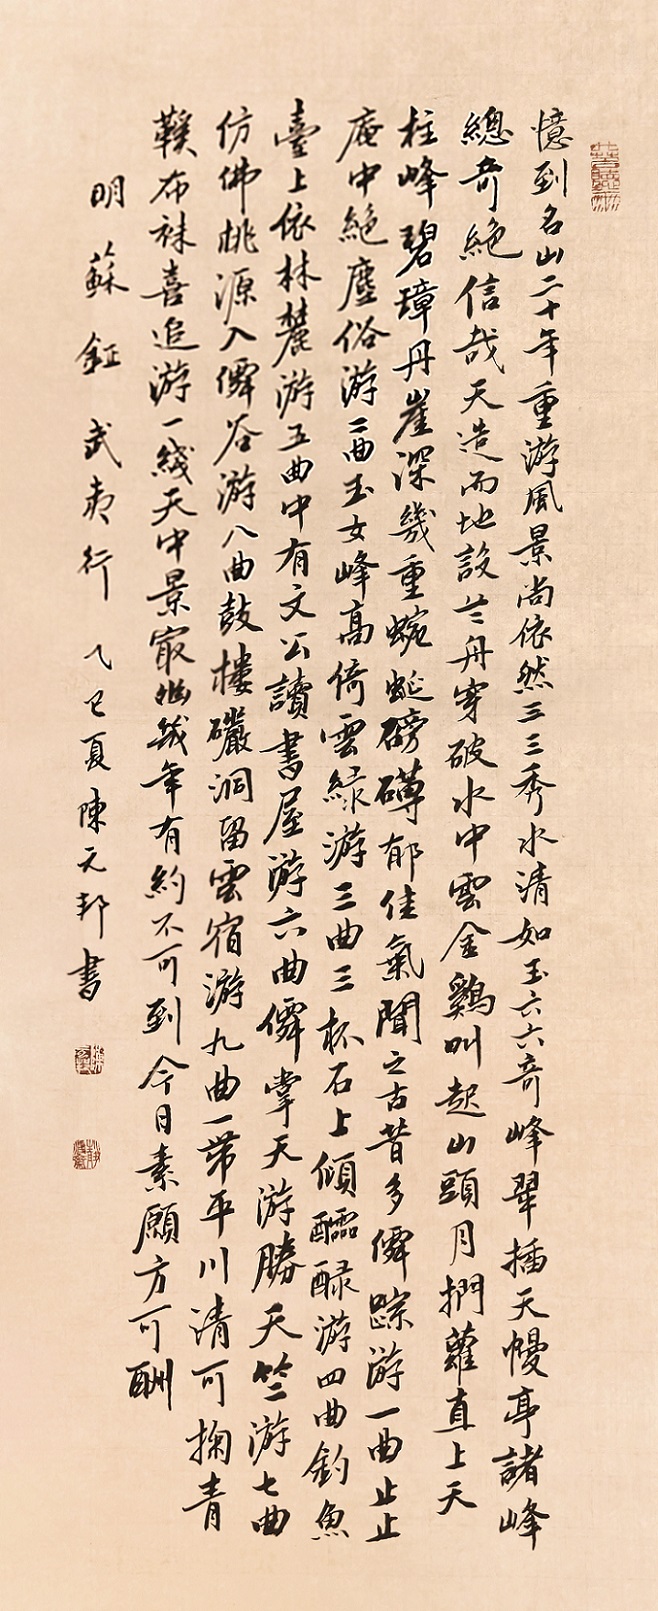 憶到名山二十年重游風景尚依然三三秀水清如玉六六奇峰翠插天幔亭諸峰
總奇絕信哉天造而地設兰舟穿破水中雲金鷄叫起山頭月捫蘿直上天
柱峰碧璋丹崖深幾重蜿蜒磅礴郁佳氣聞之古昔多僊踪游一曲止止
庵中絕塵俗游二曲玉女峰高倚雲綠游三曲三杯石上傾醽醁游四曲釣魚
臺上依林麓游五曲中有文公讀書屋游六曲僊掌天游勝天竺游七曲
仿佛桃源入僊谷游八曲鼓樓巖洞留雲宿游九曲一帶平川清可掬青
鞵布袜喜追游一綫天中景最幽幾年有約不可到今日素願方可酬
明蘇鉦武夷行乙巳夏陳元邦書